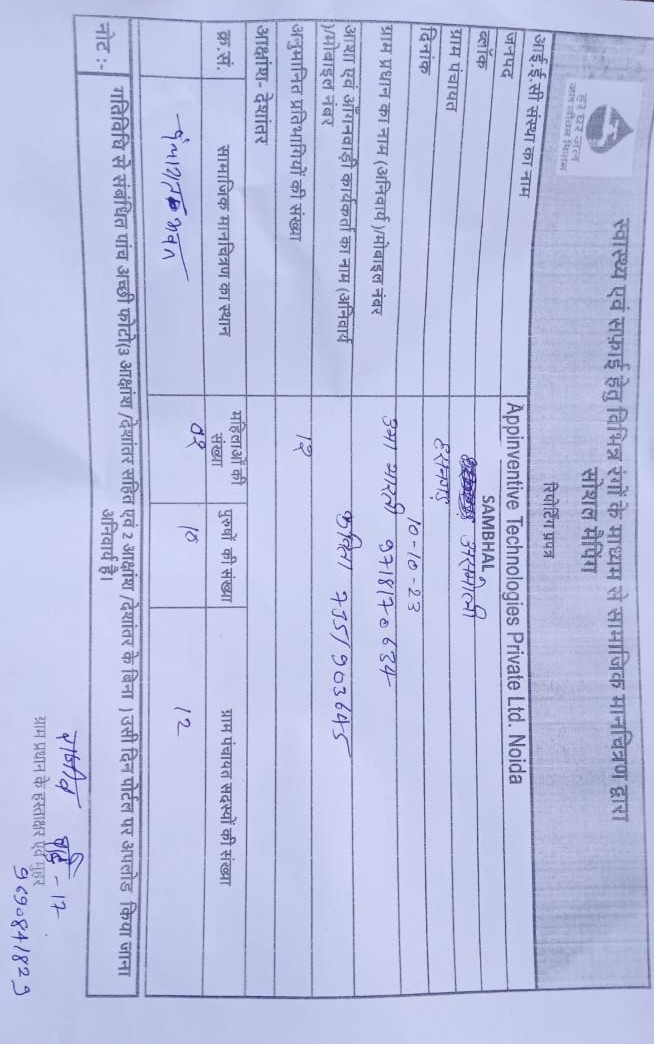 हर घर जल
जल जीवन मिशन
स्वास्थ्य एवं सफाई हेतु विभिन्न रंगों के माध्यम से सामाजिक मानचित्रण द्वारा
सोशल मैपिंग
रिपोर्टिंग प्रपत्र
आई.ई.सी संस्था का नाम Appinventive Technologies Private Ltd. Noida
जनपद SAMBHAL
ब्लॉक असमोली
ग्राम पंचायत
दिनांक 10-10-23
ग्राम प्रधान का नाम (अनिवार्य )/मोबाइल नंबर उमा भारती
आशा एवं आँगनवाड़ी कार्यकर्ता का नाम (अनिवार्य
)/मोबाइल नंबर कविता
अनुमानित प्रतिभागियों की संख्या 12
आक्षांश- देशांतर
क्र.सं. सामाजिक मानचित्रण का स्थान महिलाओं की संख्या पुरुषों की संख्या ग्राम पंचायत सदस्यों की संख्या
पंचायत भवन 02 10 12
नोट :- गतिविधि से संबंधित पांच अच्छी फोटो(3 आक्षांश /देशांतर सहित एवं 2 आक्षांश /देशांतर के बिना ) उसी दिन पोर्टल पर अपलोड किया जाना
अनिवार्य है।
ग्राम प्रधान के हस्ताक्षर एवं मुहर